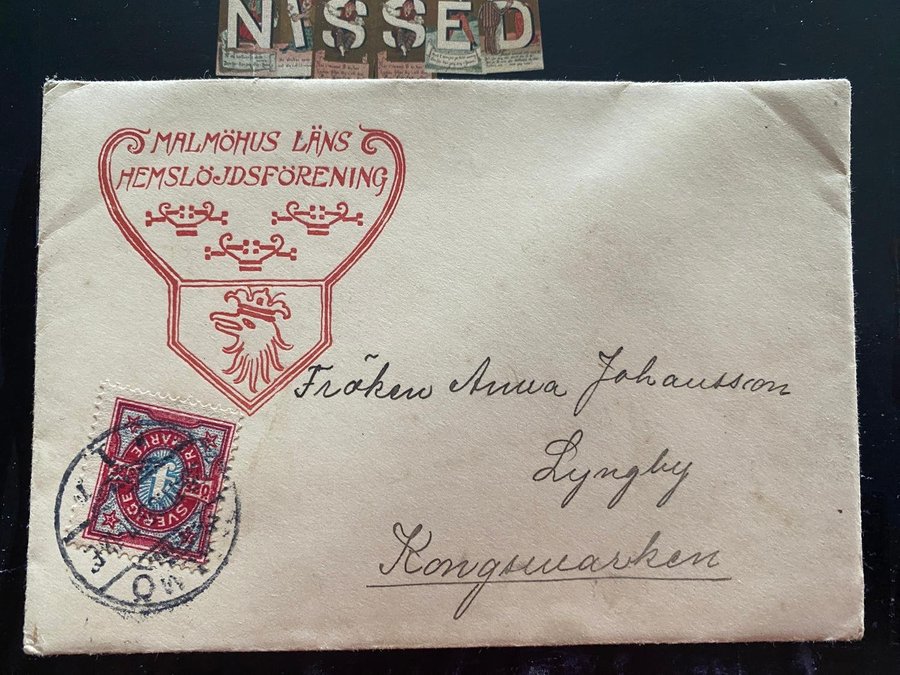 NISSED
MALMÖHUS LÄNS
HEMSLÖJDSFÖRENING
Fröken Anna Johansson
Lyngby
Kongsmarken
SVERIGE FRIMÄRKE
1